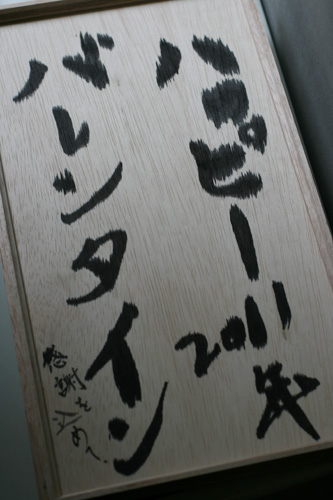 ハッピー2011年
バレンタイン
感謝を込めて、